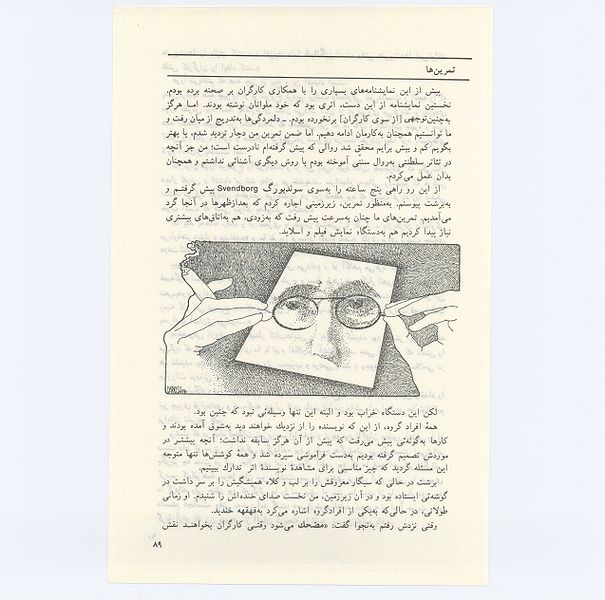 تمرین‌ها
پیش از این نمایشنامه‌های بسیاری را با همکاری کارگران بر صحنه برده بودم.
نخستین نمایشنامه از این دست، اثری بود که خود ملوانان نوشته بودند. اما هرگز
به‌چنین‌توجهی [از سوی کارگران] برنخورده بودم. ـ دلمردگی‌ها به‌تدریج از میان رفت و
ما توانستیم همچنان به‌کارمان ادامه دهیم. اما ضمن تمرین من دچار تردید شدم، یا بهتر
بگویم کم و بیش برایم محقق شد روالی که پیش گرفته‌ام نادرست است؛ من جز آنچه
در تئاتر سلطنتی به‌روال سنتی آموخته بودم با روش دیگری آشنائی نداشتم و همچنان
بدان عمل می‌کردم.
از این رو راهی پنج ساعته را به‌سوی سوندبورگ Svendborg پیش گرفتم و
به‌برشت پیوستم. به‌منظور تمرین، زیرزمینی اجاره کردم که بعدازظهرها در آنجا گرد
می‌آمدیم. تمرین‌های ما چنان به‌سرعت پیش رفت که به‌زودی، هم به‌اتاق‌های بیشتری
نیاز پیدا کردیم هم به‌دستگاه نمایش فیلم و اسلاید.
لکن این دستگاه خراب بود و البته این تنها وسیله‌ئی نبود که چنین بود.
همهٔ افراد گروه، از این که نویسنده را از نزدیك خواهند دید به‌شوق آمده بودند و
کارها به‌گونه‌ئی پیش می‌رفت که پیش از آن هرگز سابقه نداشت؛ آنچه پیشتر در
موردش تصمیم گرفته بودیم به‌دست فراموشی سپرده شد و همهٔ کوشش‌ها تنها متوجه
این مسئله گردید که چیز مناسبی برای مشاهدهٔ نویسندهٔ اثر تدارك ببینیم.
برشت در حالی که سیگار معروفش را بر لب و کلاه همیشگیش را بر سر داشت در
گوشه‌ئی ایستاده بود و در آن زیرزمین، من نخست صدای خنده‌اش را شنیدم. او زمانی
طولانی، در حالی‌که به‌یکی از افرادگروه اشاره می‌کرد به‌قهقهه خندید.
وقتی نزدش رفتم به‌نجوا گفت: «مضحك می‌شود وقتـی کارگران بخواهنـد نقش
۸۹